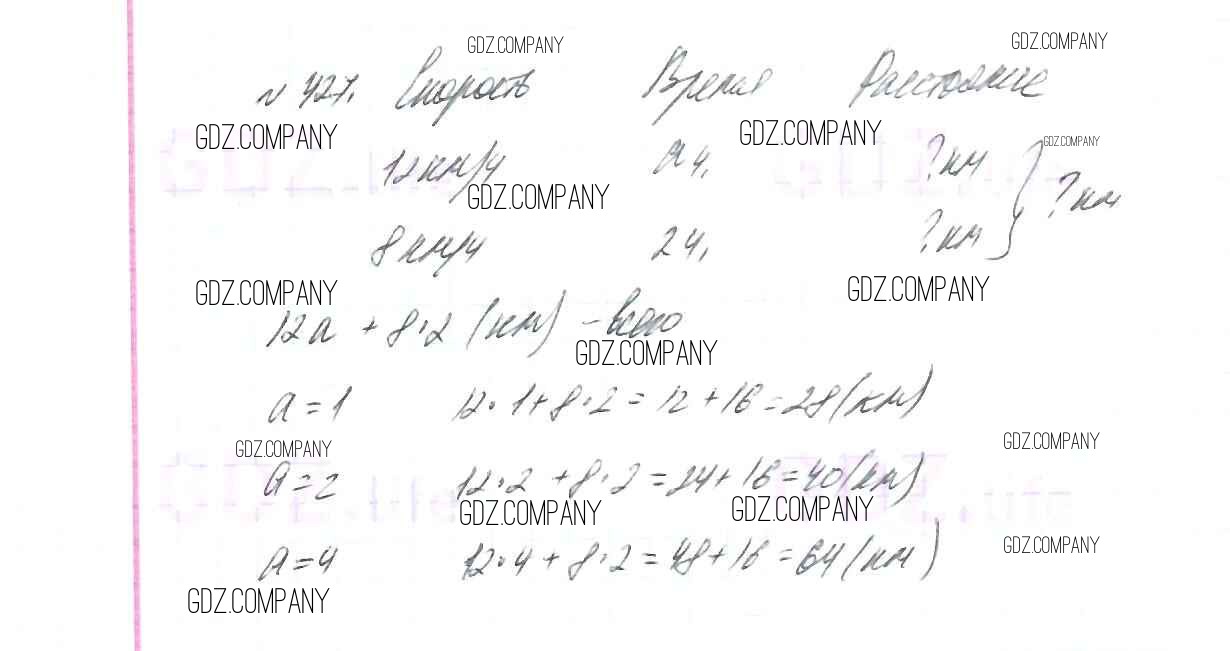 GDZ.COMPANY GDZ.COMPANY
№ 427. Скорость Время Расстояние
GDZ.COMPANY GDZ.COMPANY GDZ.COMPANY
12 км/ч а ч. ? км } ? км
GDZ.COMPANY
8 км/ч 2 ч. ? км
GDZ.COMPANY GDZ.COMPANY
12а + 8·2 (км) - всего
GDZ.COMPANY
а = 1 12·1 + 8·2 = 12 + 16 = 28 (км)
GDZ.COMPANY GDZ.COMPANY
а = 2 12·2 + 8·2 = 24 + 16 = 40 (км)
GDZ.COMPANY GDZ.COMPANY
а = 4 12·4 + 8·2 = 48 + 16 = 64 (км)
GDZ.COMPANY
GDZ.COMPANY